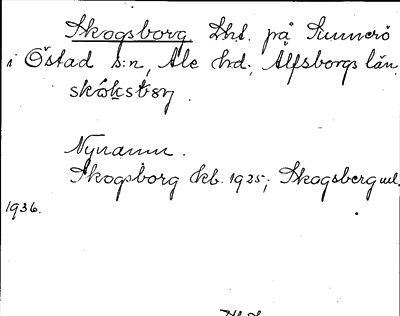 Skogsborg Lht. på Sunnerö
i Östad s:n, Ale hd., Älfsborgs län.
Nynamn.
Skogsborg kb. 1925; Skogsberg ul.
1936.